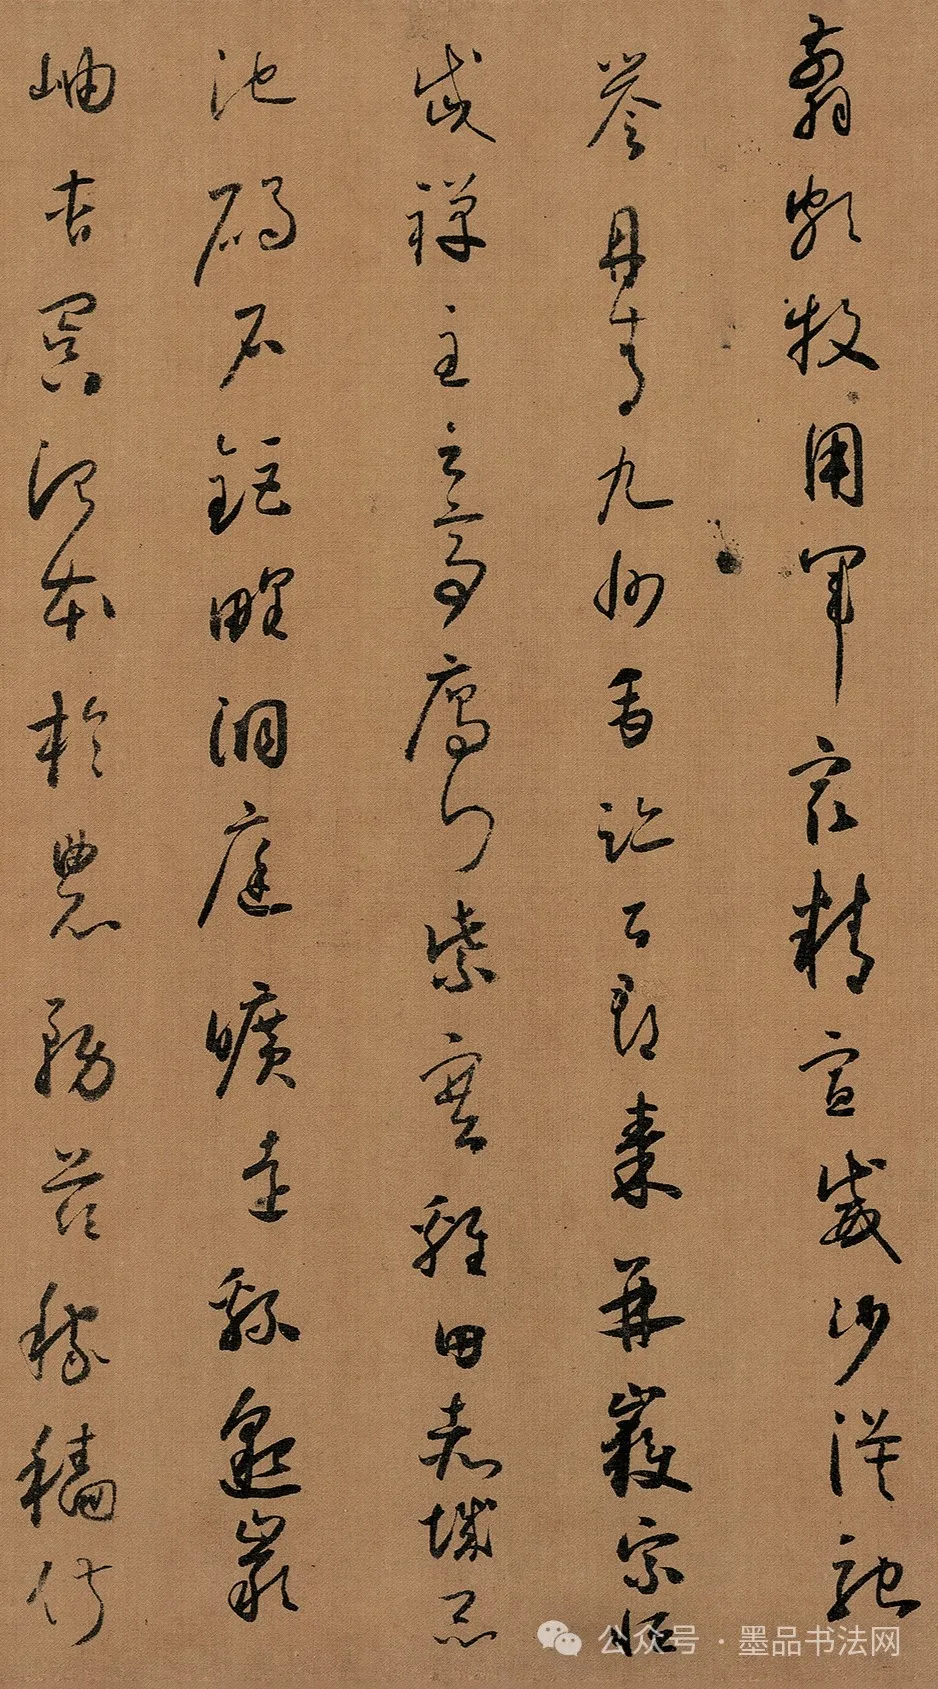 翦頗牧用軍最精宣威沙漠馳
譽丹青九州禹跡百郡秦并嶽宗恆
岱禪主云亭雁門紫塞雞田赤城昆
池碣石鉅野洞庭曠遠綿邈巖
岫杳冥治本於農務茲稼穡俶
公众号·墨品书法网